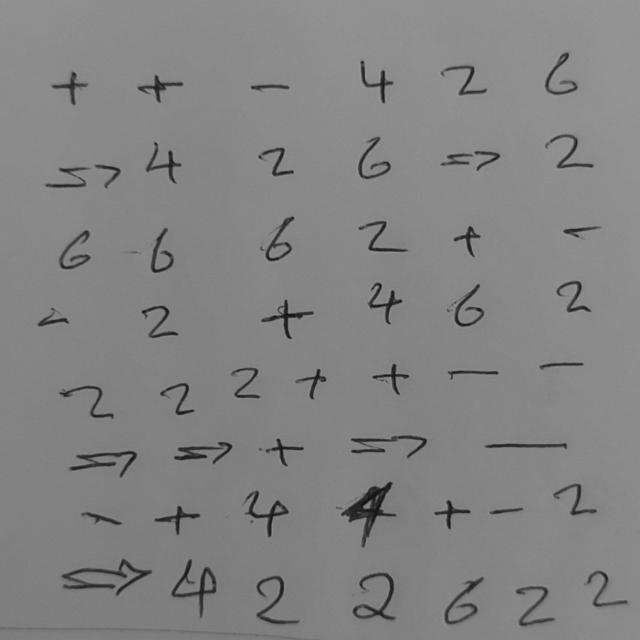 + + - 4 2 6
=> 4 2 6 => 2
6 6 6 2 + -
- 2 + 4 6 2
2 2 2 + + - -
=> => + => -
- + 4 4 + - 2
=> 4 2 2 6 2 2